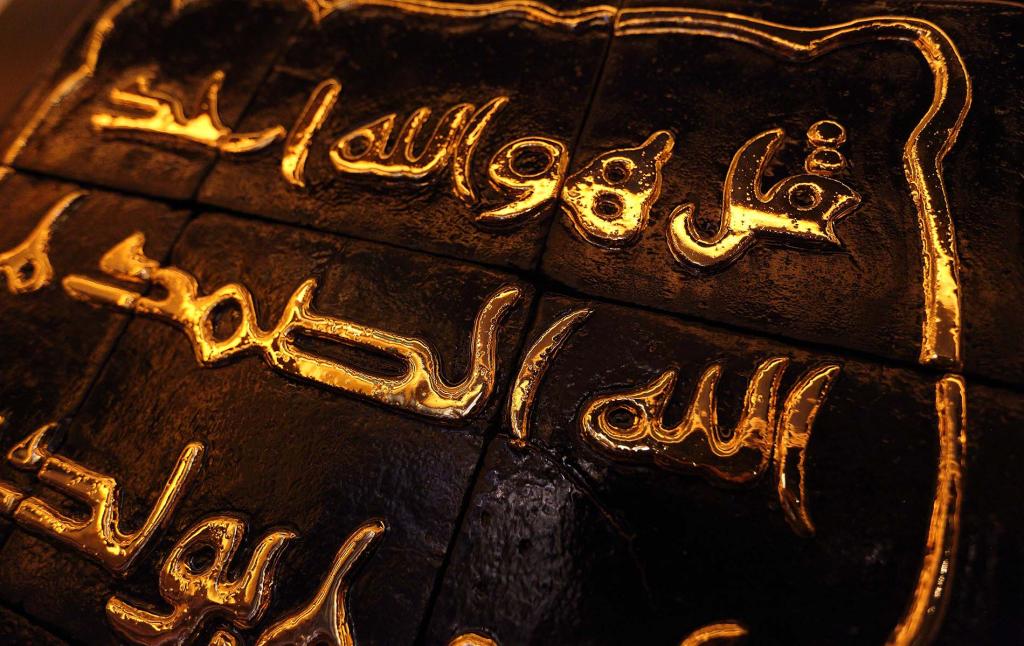 قل هو الله احد
الله الصمد
يولد